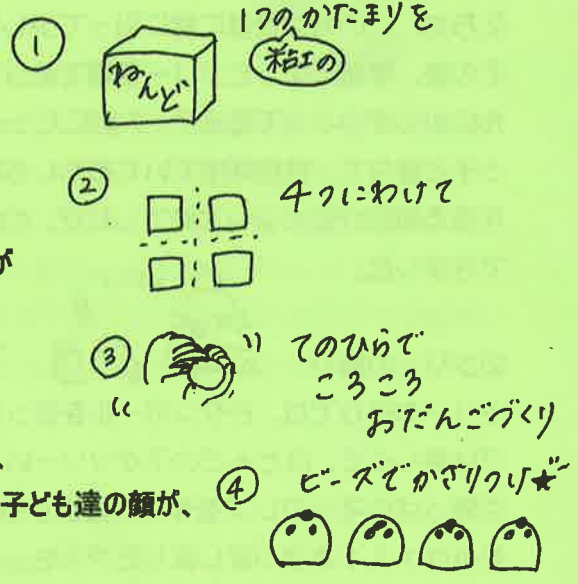 ① 1つのかたまりを
粘土の
ねんど
② 4つにわけて
が
③ てのひらで
ころころ
おだんごづくり
子ども達の顔が、
④ ビーズでかざりつけ★